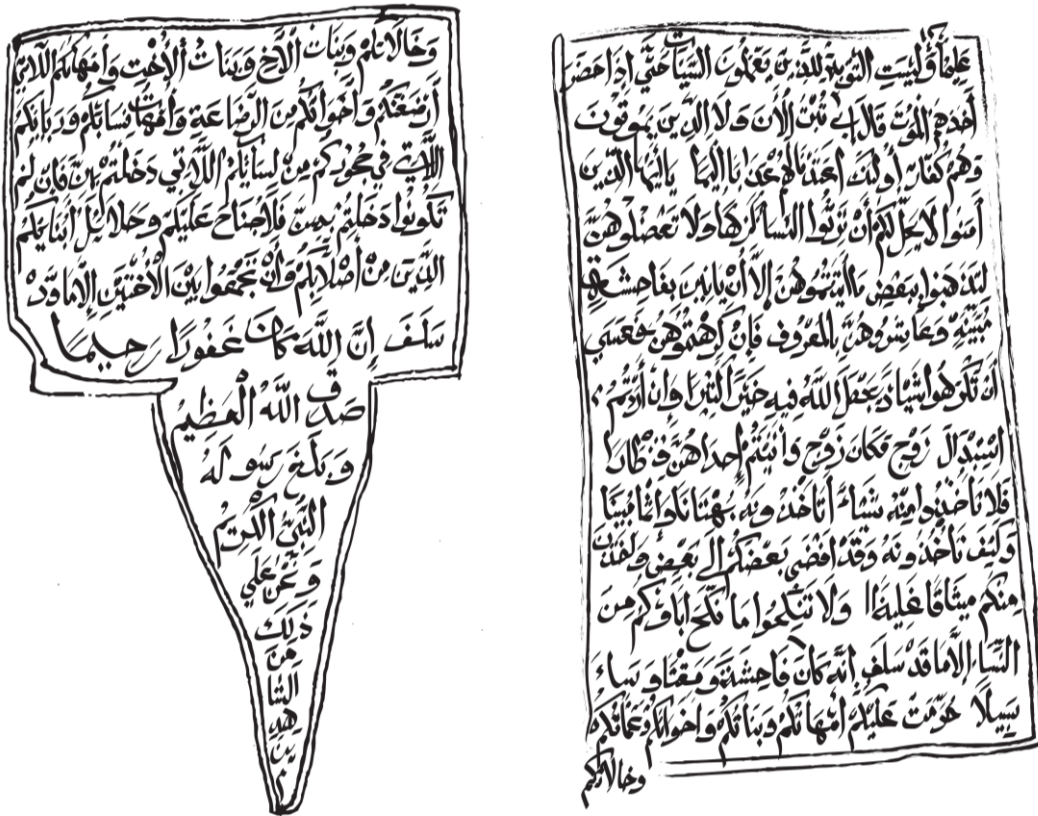 عليما وليست التوبة للذين يعملون السيات حتى اذا حضر
احدهم الموت قال اني تبت الان ولا الذين يموتون
وهم كفار اوليك اعتدنا لهم عذابا اليما ياايها الذين
امنوا لا يحل لكم ان ترثوا النسا كرها ولا تعضلوهن
لتذهبوا ببعض ما اتيتموهن الا ان ياتين بفاحشة
مبينة وعاشروهن بالمعروف فان كرهتموهن فعسى
ان تكرهوا شيا ويجعل الله فيه خيرا كثيرا وان اردتم
استبدال زوج مكان زوج واتيتم احداهن قنطارا
فلا تاخذوا منه شياء اتاخذونه بهتانا واثما مبينا
وكيف تاخذونه وقد افضى بعضكم الى بعض واخذن
منكم ميثاقا غليظا ولا تنكحوا ما نكح اباوكم من
النساء الا ما قد سلف انه كان فاحشة ومقتا وساء
سبيلا حرمت عليكم امهاتكم وبناتكم واخواتكم وعماتكم
وخالاتكم
وَخَالَاتكم وَبَنات الْاَخ وَبَنَاتُ الْاُخْت وَأمهاتكم اللاتي
أرضعنكم وَاخَوَاتكم مِنَ الرضَاعَةِ وَأمهات نِسَائكم وَرَبائبكم
اللاتي في حُجُوركم مِنْ نسائكم اللاتي دَخَلتم بهن فَان لم
تكونوا دَخَلتم بهن فَلا جناح عليكم وَحلائل ابنائكم
الذين مِنْ أصْلابكم وَأنْ تجمعوا بَيْنَ الْاُخْتَيْنِ اِلا ما قَدْ
سَلَفَ إنَّ اللَّهَ كَانَ غَفُورًا رحيما
صَدَقَ اللَّهُ الْعَظِيمُ
وَبَلَغ رَسوله
النبي الكريم
وَنحن علي
ذَلِكَ
مِنَ
الشا
هد
ين